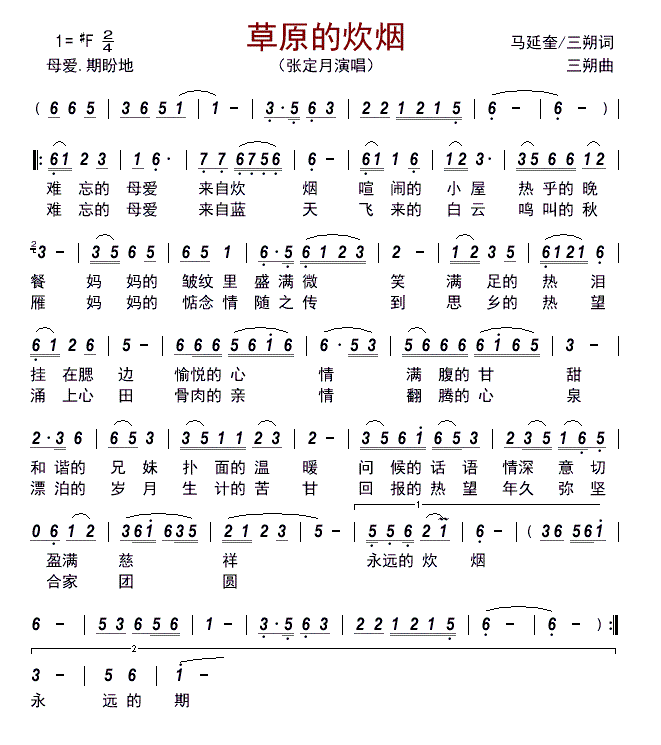 草原的炊烟
1= #F 2/4
马延奎/三朔词
母爱.期盼地
（张定月演唱）
三朔曲
( 6 6 5 | 3 6 5 1 | 1 - | 3 · 5 6 3 | 2 2 1 2 1 5 | 6 - | 6 - )
|: 6 1 2 3 | 1 6 · | 7 7 6 7 5 6 | 6 - | 6 1 1 6 | 1 2 3 · | 3 5 6 6 1 2
难 忘的 母爱 来自炊 烟 喧 闹的 小 屋 热 乎的 晚
难 忘的 母爱 来自蓝 天 飞 来的 白 云 鸣 叫的 秋
2 3 - | 3 5 6 5 | 6 5 1 | 6 · 5 6 1 2 3 | 2 - | 1 2 3 5 | 6 1 2 1 6
餐 妈 妈的 皱纹 里 盛 满 微 笑 满 足的 热 泪
雁 妈 妈的 惦念 情 随 之 传 到 思 乡的 热 望
6 1 2 6 | 5 - | 6 6 6 5 6 1 6 | 6 · 5 3 | 5 6 6 6 6 1 6 5 | 3 - |
挂 在腮 边 愉悦的 心 情 满 腹的 甘 甜
涌 上心 田 骨肉的 亲 情 翻 腾的 心 泉
2 · 3 6 | 6 5 3 | 3 5 1 1 2 3 | 2 - | 3 5 6 1 6 5 3 | 2 3 5 1 6 5
和 谐的 兄 妹 扑 面的 温 暖 问 候的 话 语 情深 意 切
漂 泊的 岁 月 生 计的 苦 甘 回 报的 热 望 年久 弥 坚
1
0 6 1 2 | 3 6 1 6 3 5 | 2 1 2 3 | 5 - | 5 5 6 2 1 | 6 - | ( 3 6 5 6 1
盈满 慈 祥 永远的 炊 烟
合家 团 圆
6 - | 5 3 6 5 6 | 1 - | 3 · 5 6 3 | 2 2 1 2 1 5 | 6 - | 6 - ) :|
2
3 - | 5 6 | 1 -
永 远 的 期